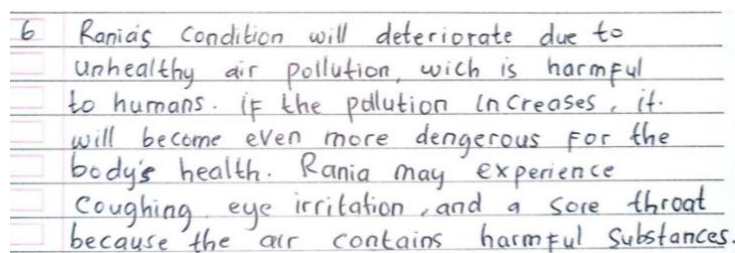 6 Rania's condition will deteriorate due to
unhealthy air pollution, wich is harmful
to humans. if the pollution increases, it.
will become even more dengerous for the
body's health. Rania may experience
coughing, eye irritation, and a sore throat
because the air contains harmful substances.